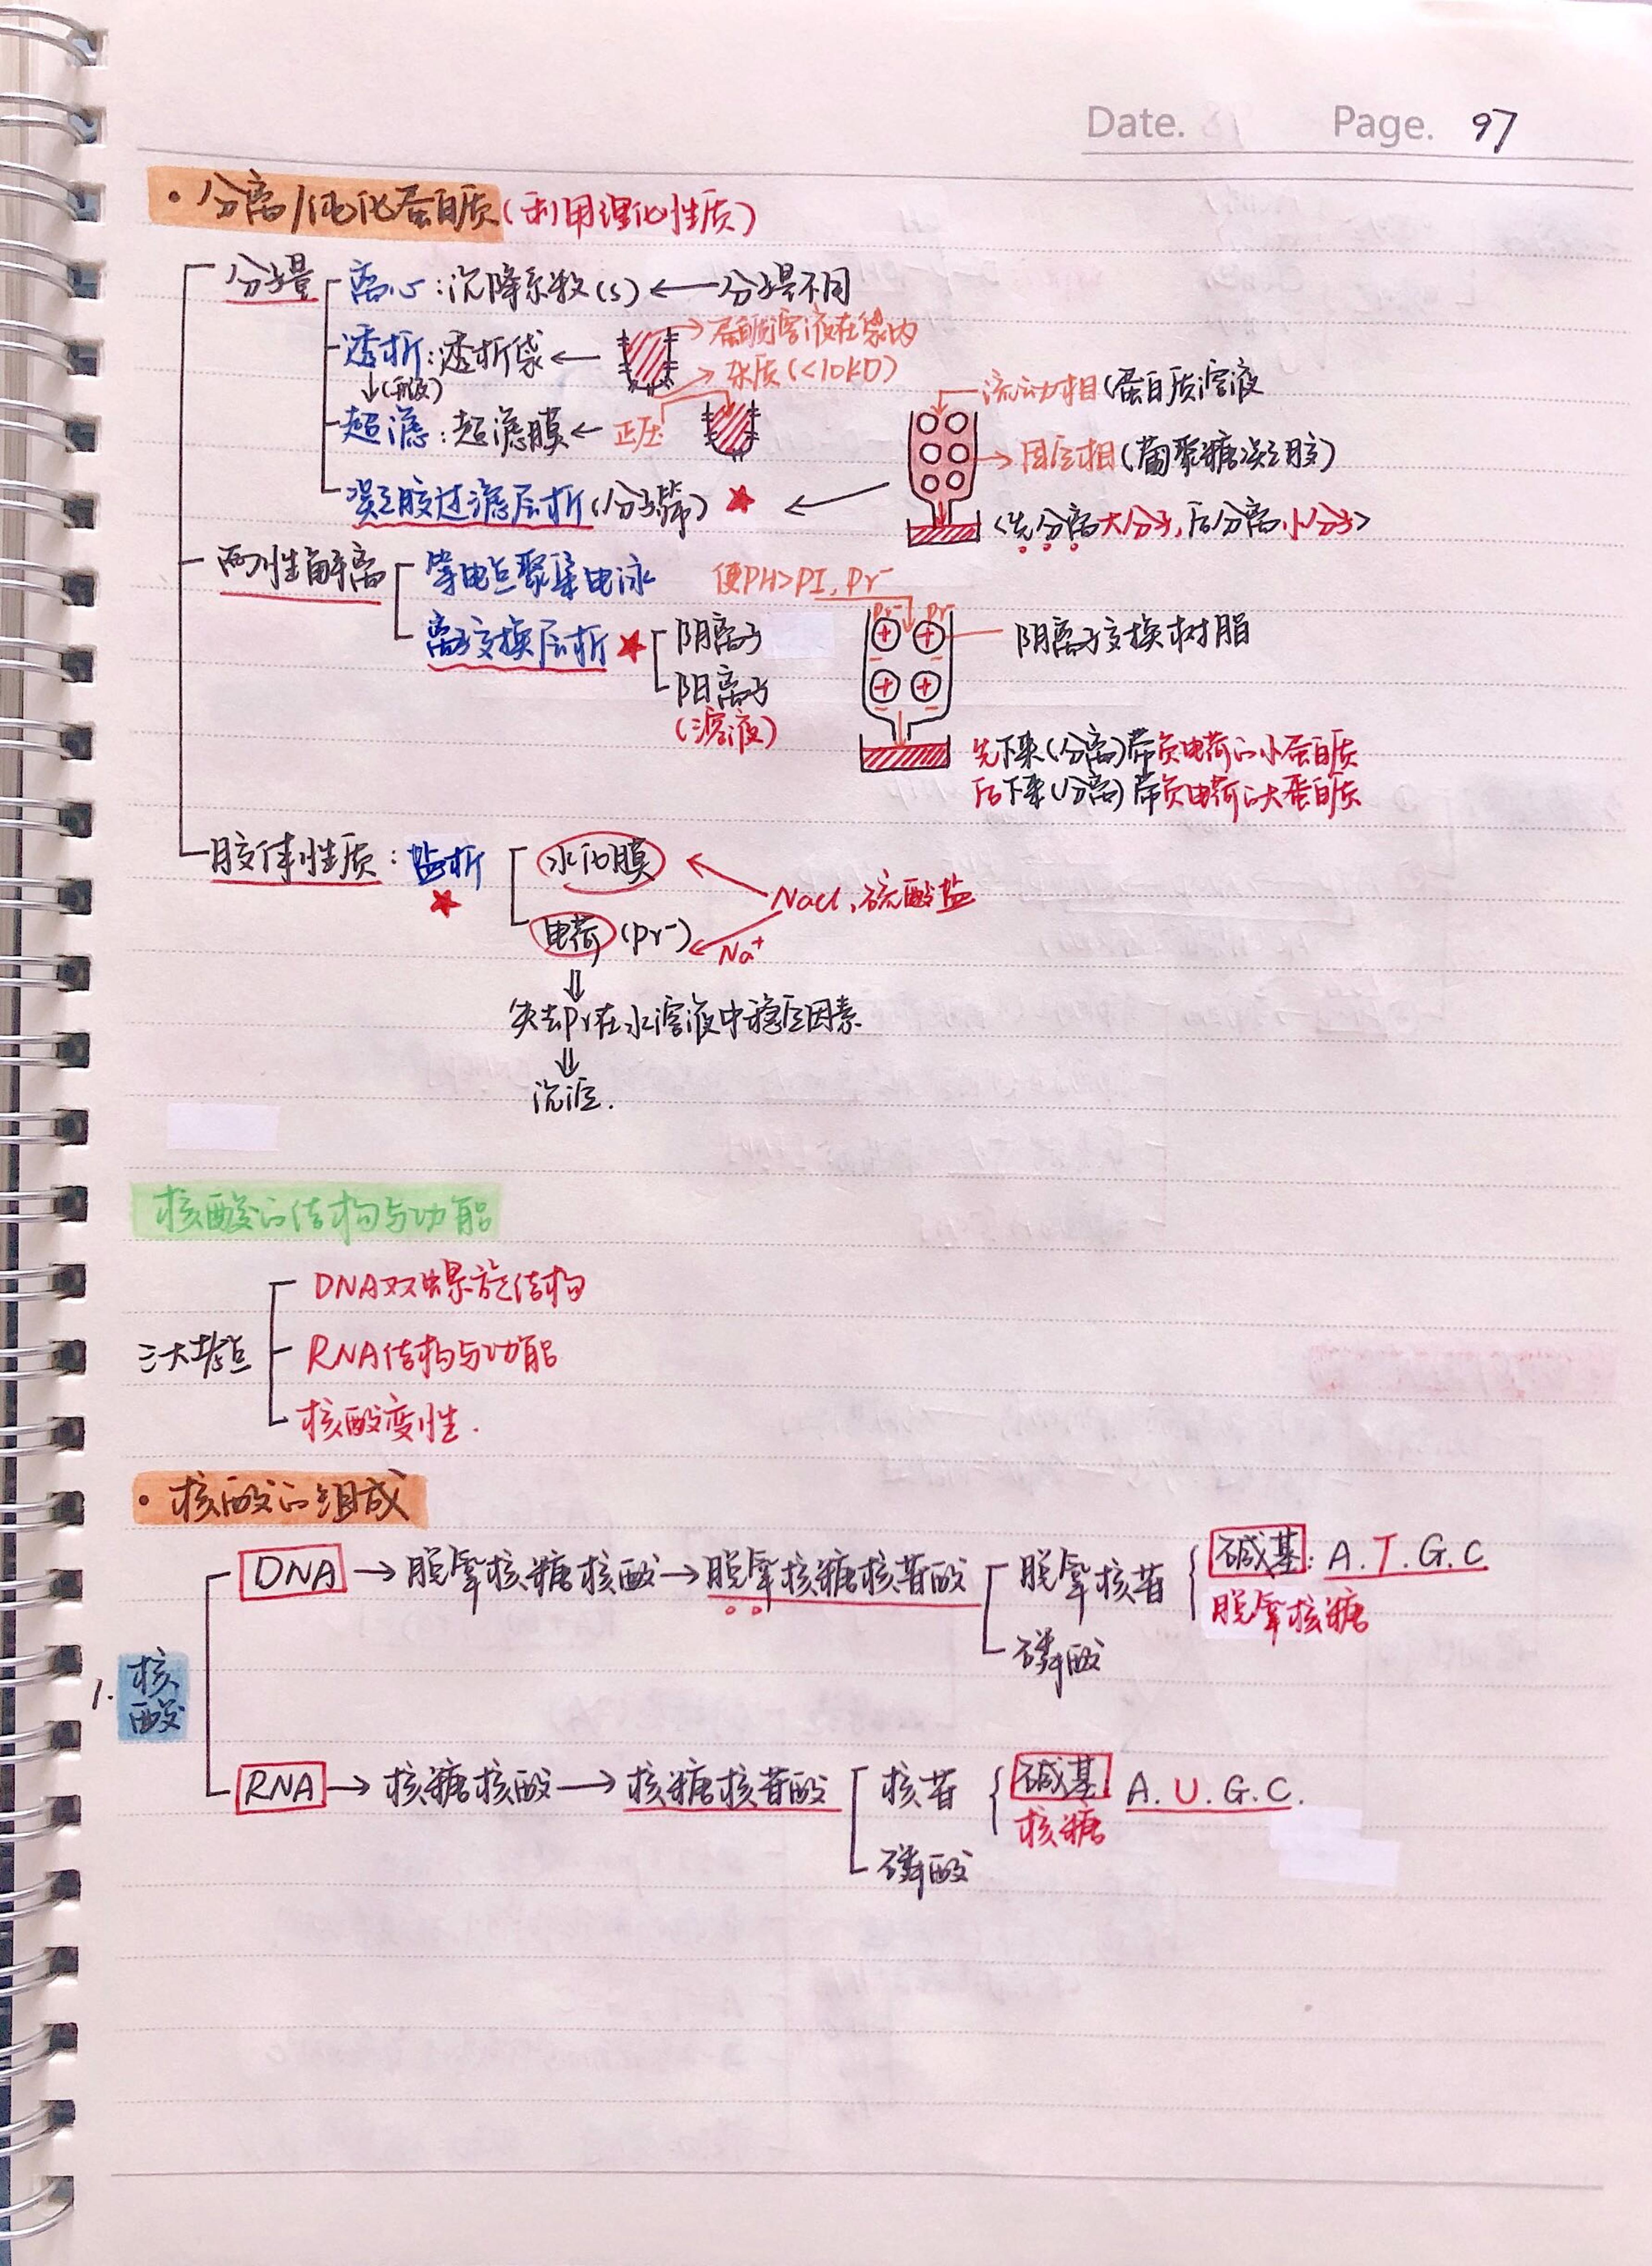 Date. Page. 97
·分离/纯化蛋白质(利用理化性质)
分子量 离心:沉降系数(s)←分子量不同
透析:透析袋← →蛋白质溶液在袋内
→杂质(<10KD)
超滤:超滤膜← 正压
流动相(蛋白质溶液
固定相(葡聚糖凝胶)
凝胶过滤层析(分子筛)★
<先分离大分子,后分离小分子>
两性解离 等电点聚焦电泳
使PH>PI, Pr⁻
Pr⁻ Pr⁻
离子交换层析★ 阴离子
阳离子
(溶液)
阴离子交换树脂
先下来(分离)带负电荷的小蛋白质
后下来(分离)带负电荷的大蛋白质
胶体性质:盐析★ 水化膜
NaCl、硫酸盐
电荷(Pr⁻) Na⁺
⇓
失去Pr在水溶液中稳定因素
⇓
沉淀.
核酸的结构与功能
三大考点 DNA双螺旋结构
RNA结构与功能
核酸变性.
·核酸的组成
1.核酸
DNA→脱氧核糖核酸→脱氧核糖核苷酸 脱氧核苷 碱基:A.T.G.C
脱氧核糖
磷酸
RNA→核糖核酸→核糖核苷酸 核苷 碱基 A.U.G.C.
核糖
磷酸